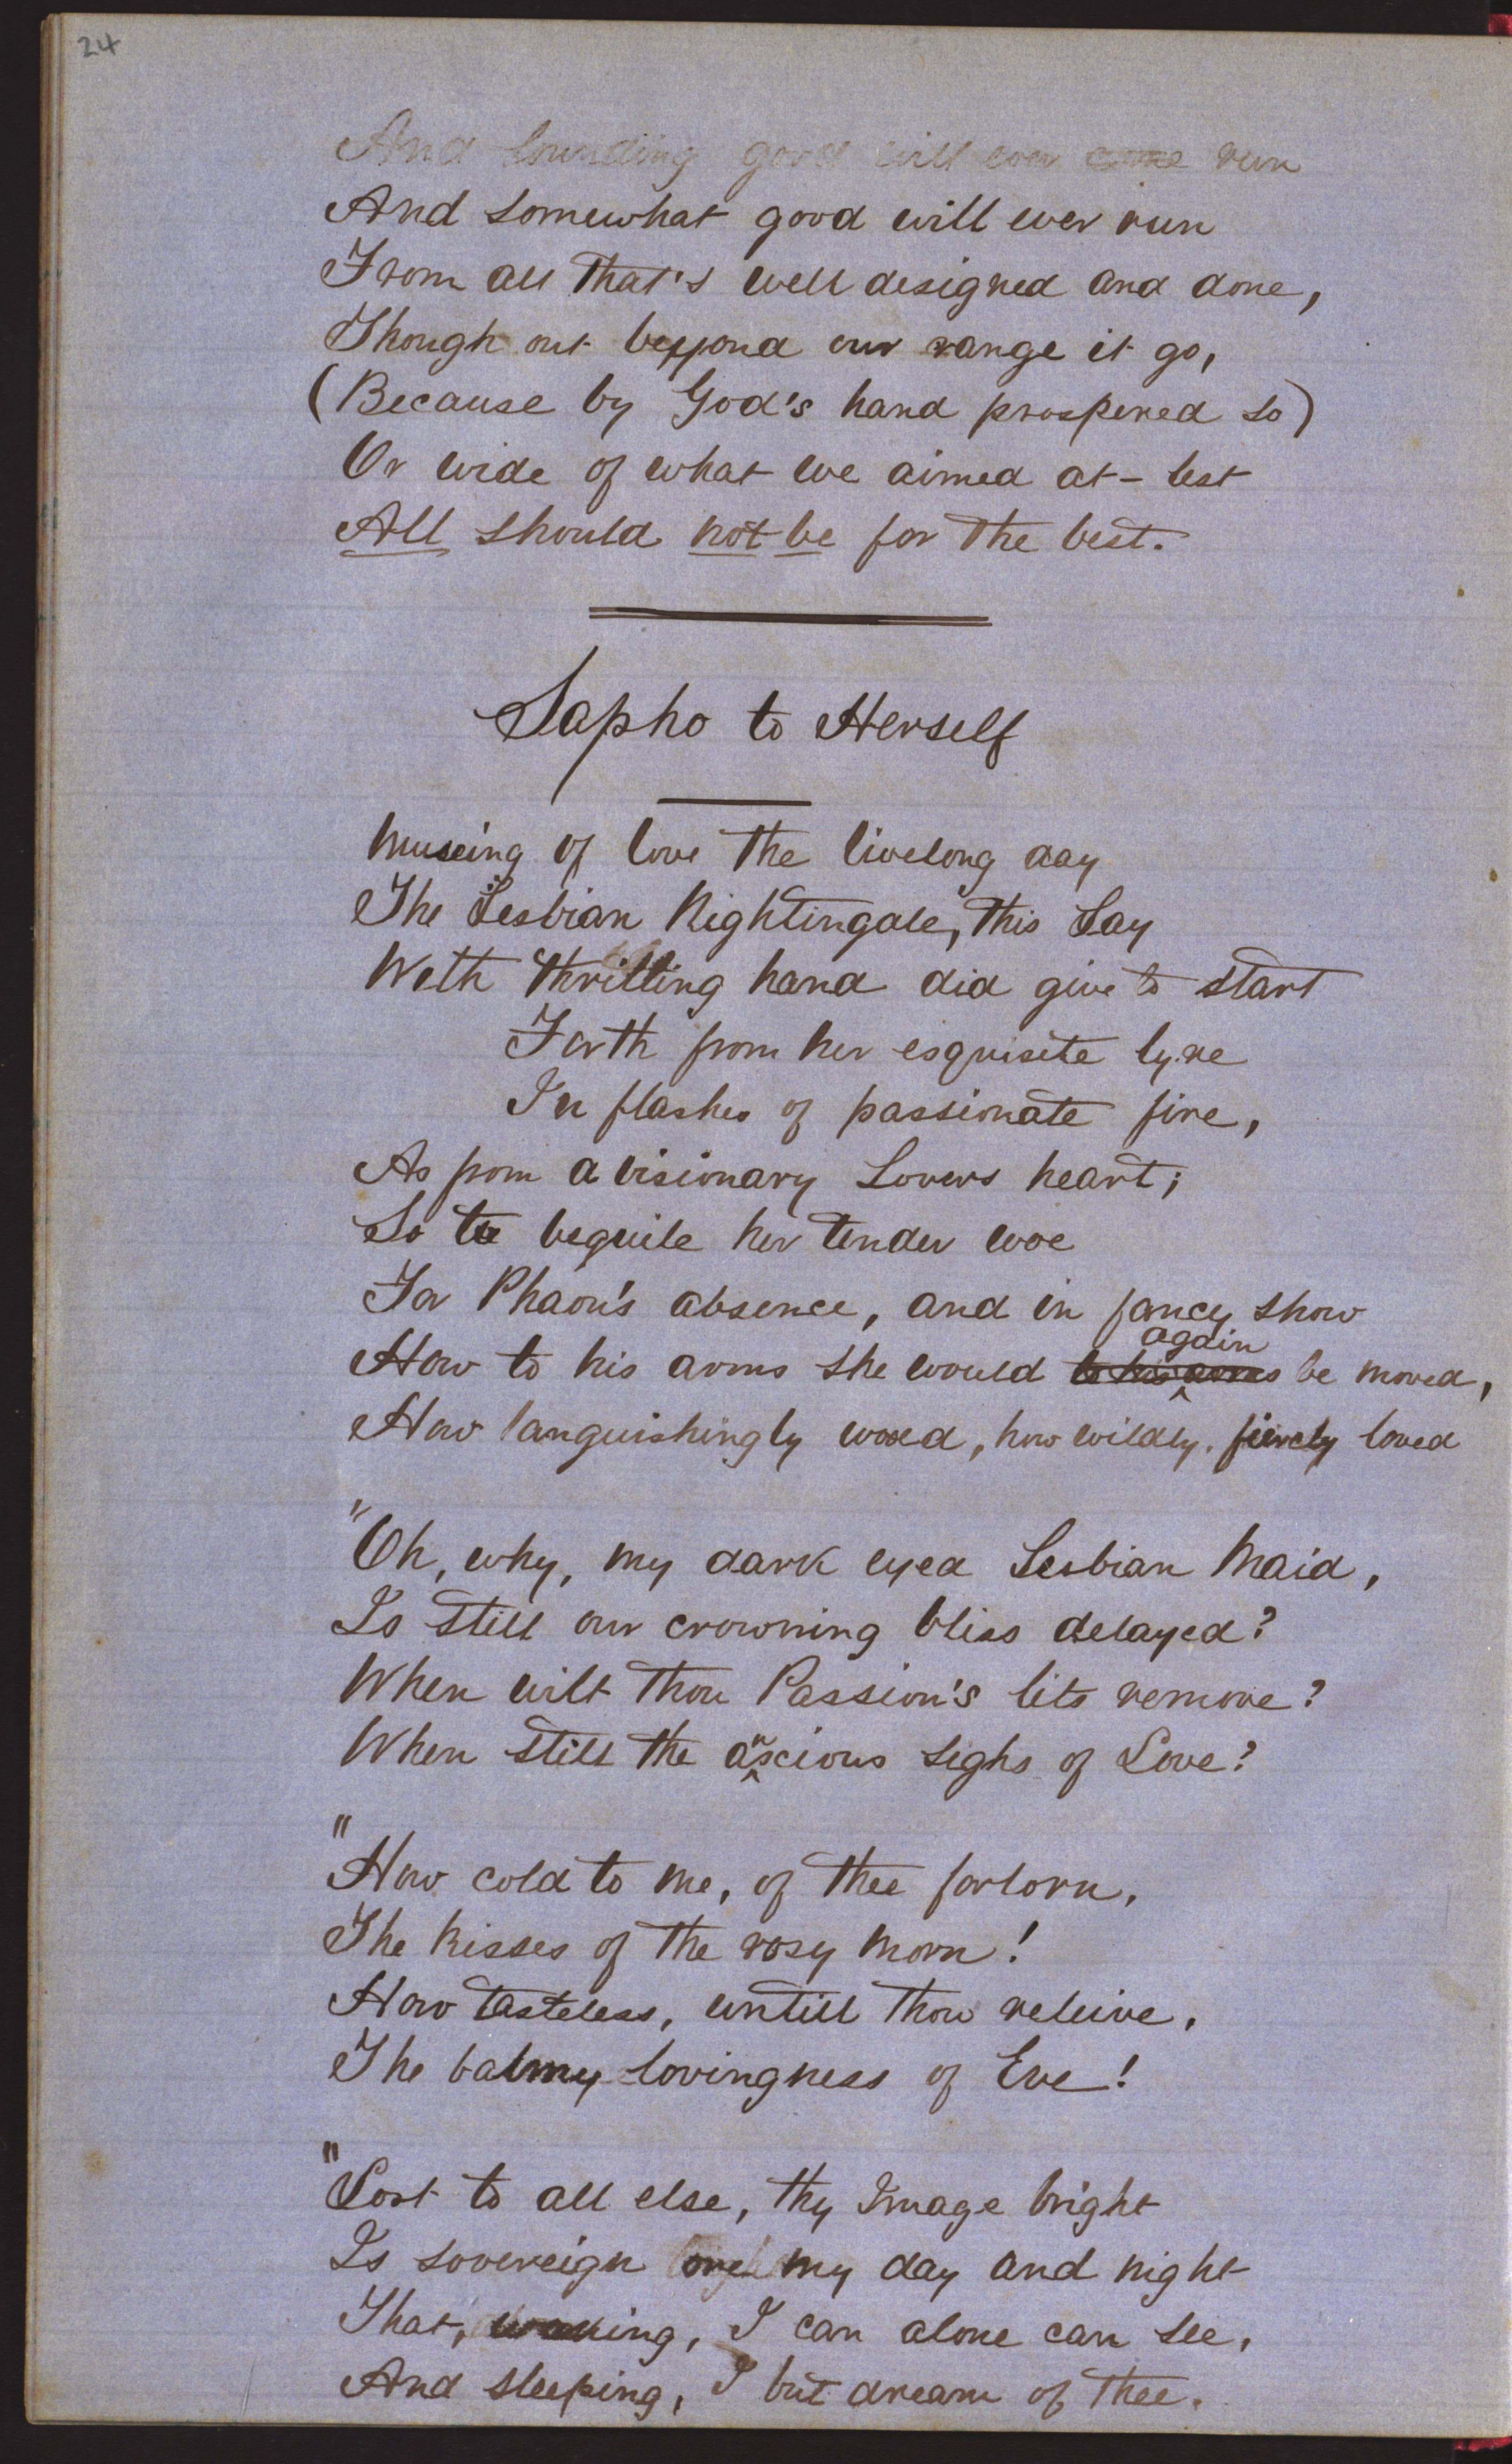 24
And bounding good will ever come run
And somewhat good will ever run
From all that's well designed and done,
Though out beyond our range it go,
(Because by God's hand prospered so)
Or wide of what we aimed at – lest
All should not be for the best.
Sapho to Herself
Museing of love the livelong day
The Lesbian Nightingale, this Lay
With thrilling hand did give to start
Forth from her esquisite lyre
In flashes of passionate fire,
As from a visionary Lovers heart;
So to beguile her tender woe
For Phaon's absence, and in fancy show
again
How to his arms she would to his arms be moved,
How languishingly wooed, how wildly, fiercly loved
"Oh, why, my dark eyed Lesbian Maid,
Is still our crowning bliss delayed?
When wilt thou Passion's lets remove?
When still the anxcious sighs of Love?
"How cold to me, of thee forlorn,
The kisses of the rosy morn!
How tasteless, untill thou releive,
The balmy lovingness of Eve!
"Lost to all else, thy Image bright
Is sovereign over my day and night
That, waking, I can alone can see,
And sleeping, I but dream of thee.